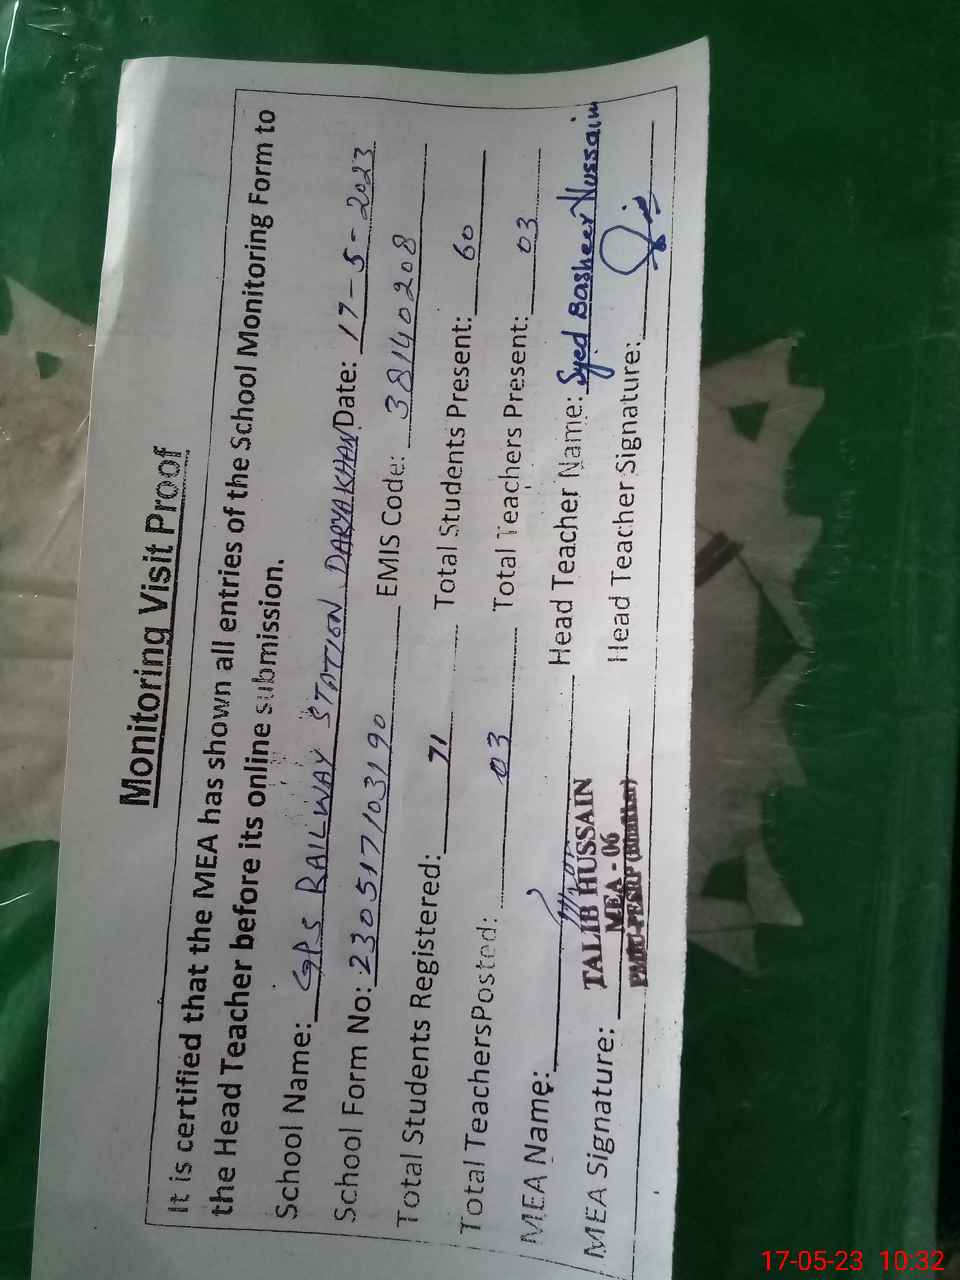 Monitoring Visit Proof
It is certified that the MEA has shown all entries of the School Monitoring Form to
the Head Teacher before its online submission.
School Name: GPS RAILWAY STATION DARYAKHAN Date: 17-5-2023
School Form No: 230517103190 EMIS Code: 38140208
Total Students Registered: 71 Total Students Present: 60
Total TeachersPosted: 03 Total Teachers Present: 03
MEA Name: Head Teacher Name: Syed Basheer Hussain
TALIB HUSSAIN
MEA - 06
MEA Signature: Head Teacher Signature:
17-05-23 10:32